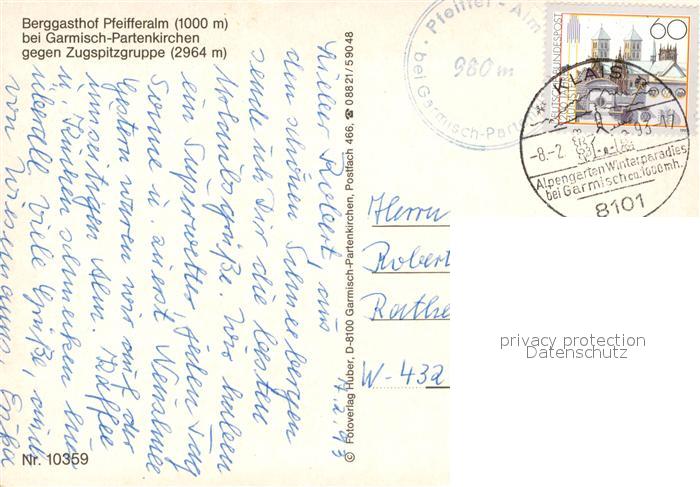 Berggasthof Pfeifferalm (1000 m)
bei Garmisch-Partenkirchen
gegen Zugspitzgruppe (2964 m)
· Pfeiffer - Alm
980 m
bei Garmisch-Part
60
DEUTSCHE BUNDESPOST
KLAIS
-8.-2. 93
Alpengarten Winterparadies
bei Garmisch ca. 1000 m h.
8101
Lieber Robert, aus
den schönen Schneebergen
sende ich Dir die besten
Urlaubsgrüße. Wir haben
ein Superwetter jeden Tag
Sonne u. zuerst Neuschnee
Gestern waren wir auf der
Alm. Kaffee
u. Kuchen schmecken hier
überall. Viele Grüße, auch
von
7.2.93
© Fotoverlag Huber, D-8100 Garmisch-Partenkirchen, Postfach 466, ☎ 0 88 21/5 90 48
Herrn
Robert
W-432
privacy protection
Datenschutz
Nr. 10359